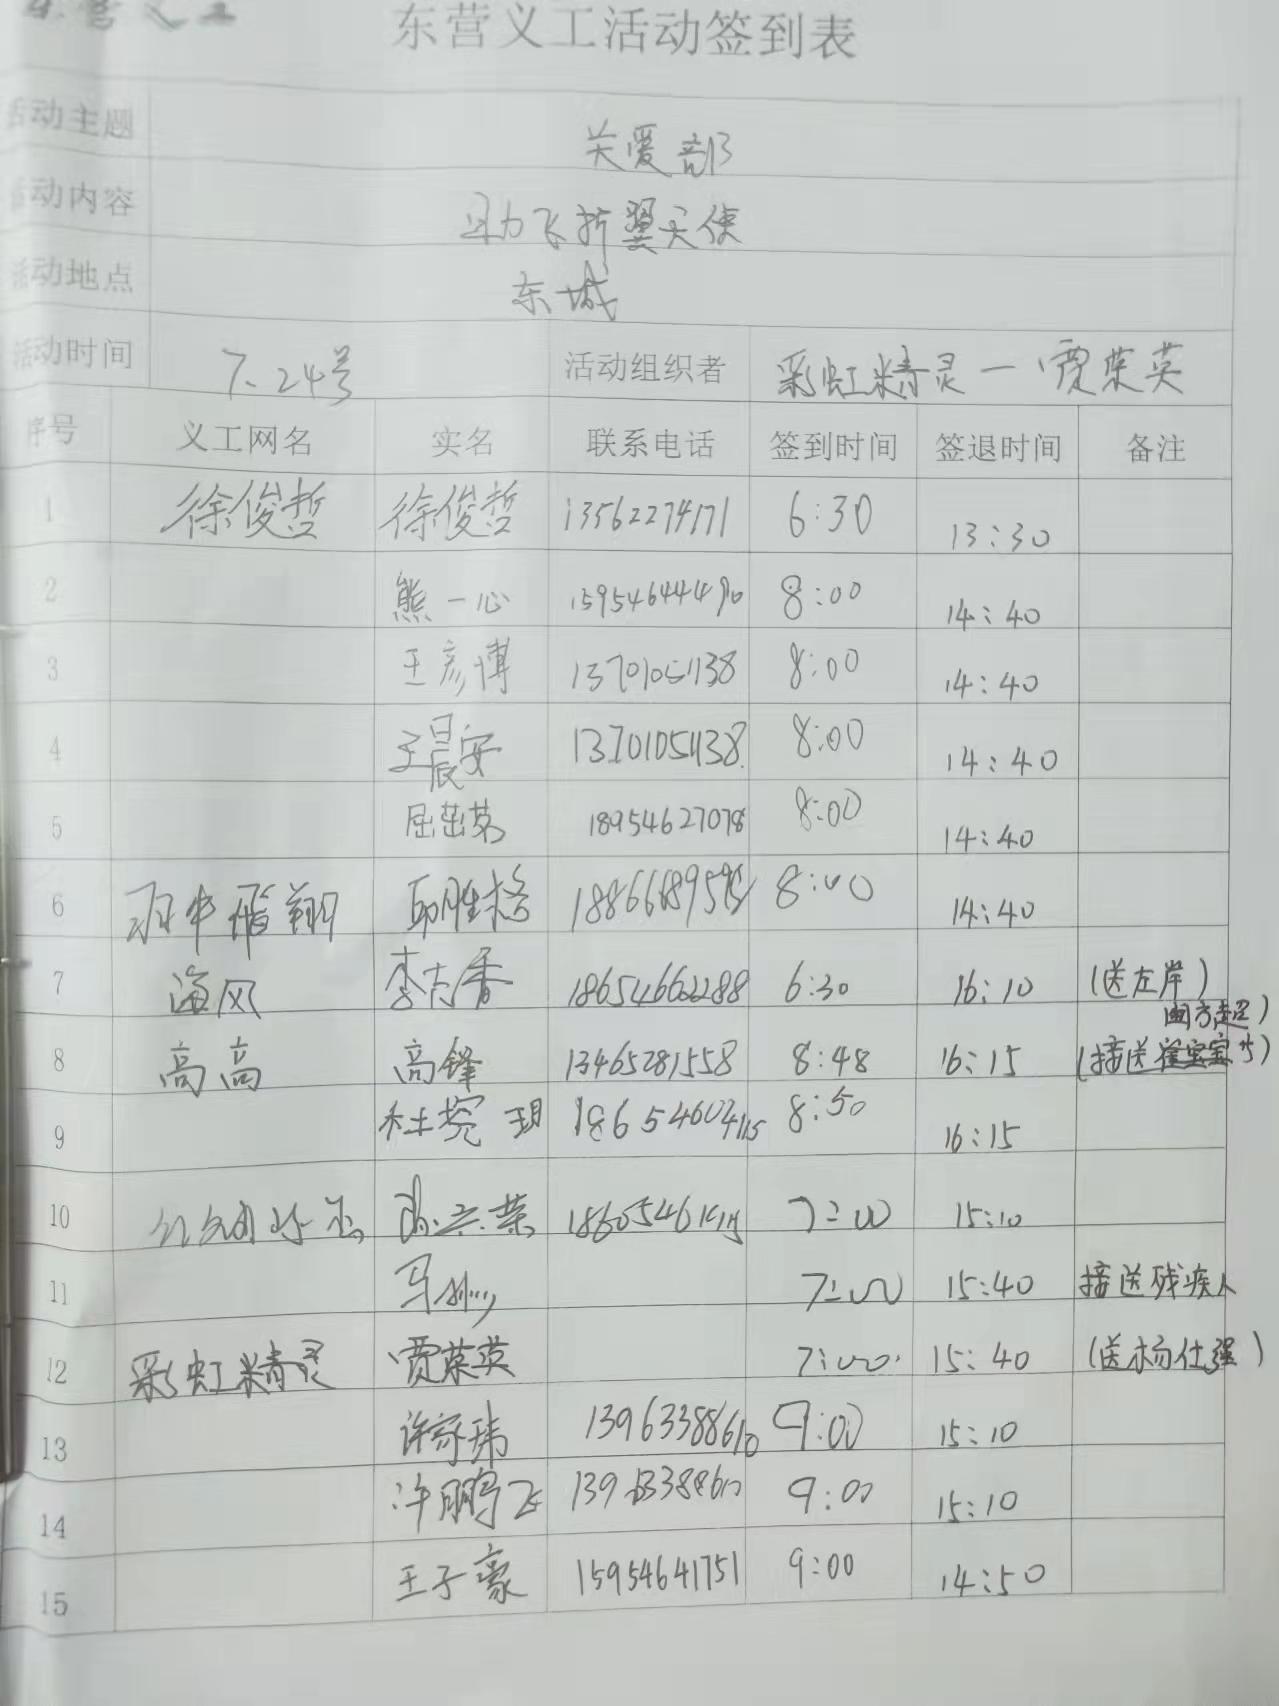 东营义工
东营义工活动签到表
活动主题 关爱部
活动内容 助飞折翼天使
活动地点 东城
活动时间 7.24号 活动组织者 彩虹精灵一贾荣英
序号 义工网名 实名 联系电话 签到时间 签退时间 备注
1 徐俊哲 徐俊哲 13562274171 6:30 13:30
2 熊一心 15954644490 8:00 14:40
3 王彦博 13701051138 8:00 14:40
4 王晨安 13701051138 8:00 14:40
5 屈茁茹 18954627078 8:00 14:40
6 雨中飛翔 8:00 14:40
7 海风 李志香 18654662288 6:30 16:10 (送左岸)
8 高高 高锋 13465281558 8:48 16:15 (接送
9 杜 18654604115 8:50 16:15
10 7:00 15:10
11 马 7:00 15:40 接送残疾人
12 彩虹精灵 贾荣英 7:00 15:40 (送杨仕强)
13 许家玮 13963388610 9:00 15:10
14 许鹏飞 13963388610 9:00 15:10
15 王子豪 15954641751 9:00 14:50